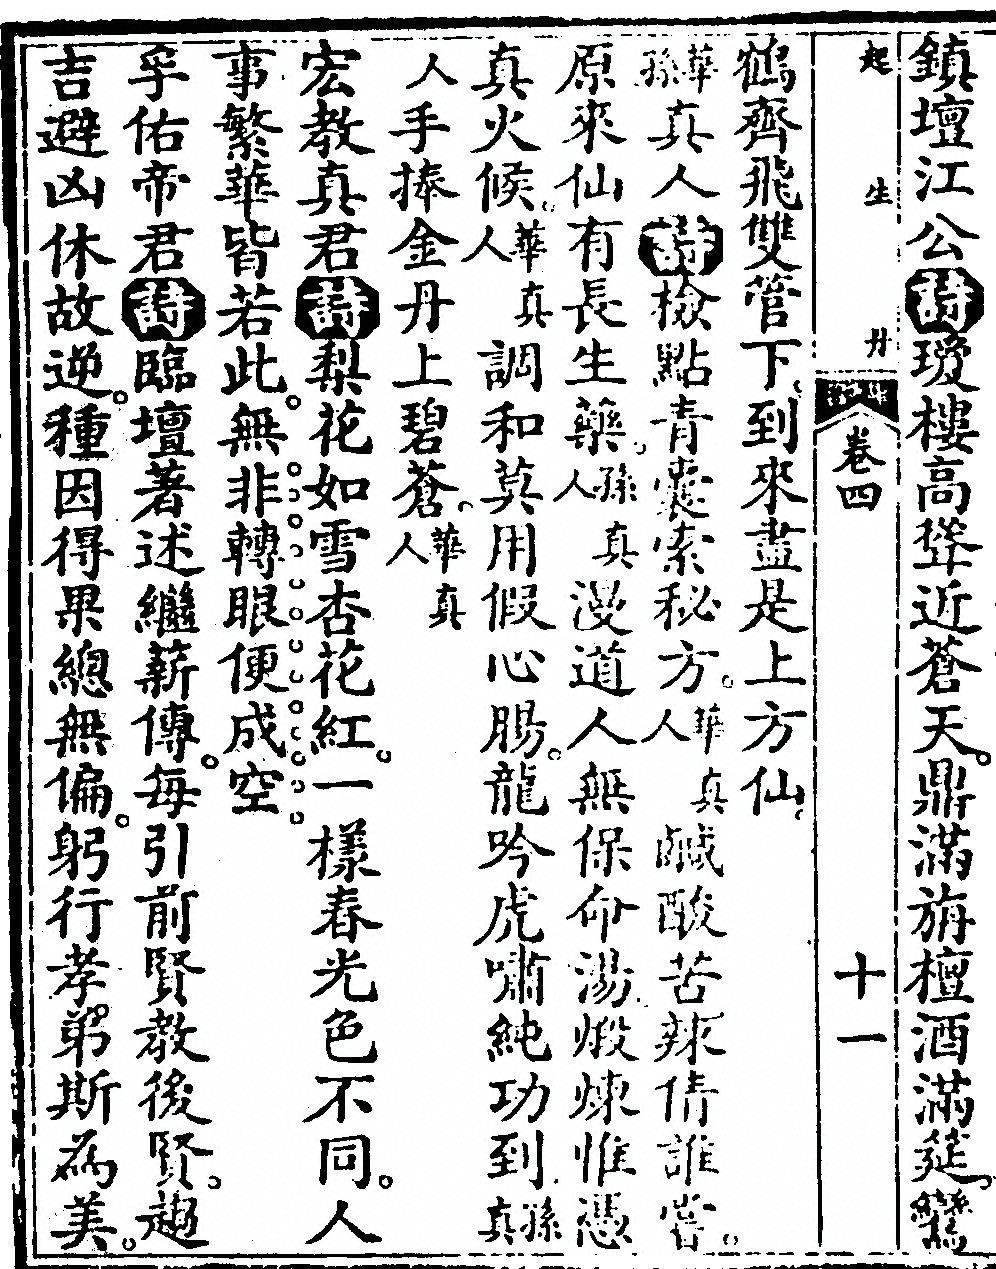 鎮壇江公詩瓊樓高聳近蒼天。鼎滿旃檀酒滿筵。鸞
起生丹 卷四 十一
鶴齊飛雙管下。到來盡是上方仙。
孫華真人詩檢點青囊索秘方。華真人鹹酸苦辣倩誰嘗。
原來仙有長生藥。孫真人漫道人無保命湯。煅煉惟憑
真火候。華真人調和莫用假心腸。龍吟虎嘯純功到孫真
人手捧金丹上碧蒼。華真人
宏教真君詩梨花如雪杏花紅。一樣春光色不同。人
事繁華皆若此。無非轉眼便成空。
孚佑帝君詩臨壇著述繼薪傳。每引前賢教後賢。趨
吉避凶休故逆。種因得果總無偏。躬行孝弟斯為美。